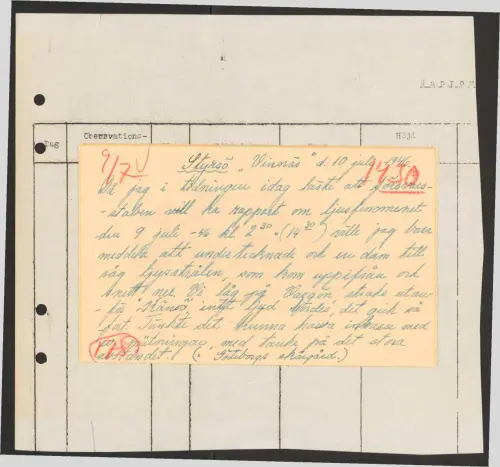 RADIOF
Dag
Observations-
Höjd
9/7 V
Styrsö "Vinnäs" d. 10 juli 1946.
14 30
jag i tidningen idag läste att försvars-
-staben vill ha rapport om ljusfenomenet
den 9 juli -46 kl. 2 30 (14 30) ville jag bara
meddela att undertecknade och en dam till
såg ljusstrålen, som kom uppifrån och
snett ner. Vi låg på Vargön, strax utan-
-för Känsö, intet ljud hördes, det gick så
fort. Tänkte det kunna hava intresse med
mätningar, med tanke på det stora
avståndet. (Göteborgs skärgård.)